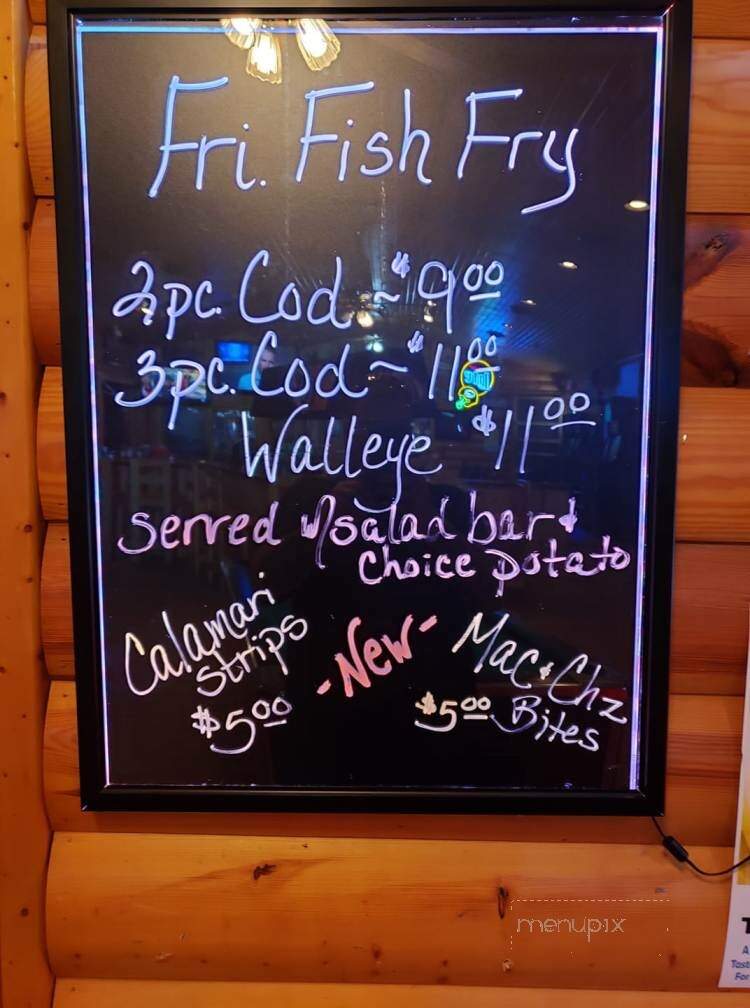 Fri. Fish Fry
2pc. Cod ~ $9.00
3pc. Cod ~ $11.00
Walleye $11.00
served w/salad bar &
choice potato
Calamari
strips
$5.00
-New-
Mac & Chz
$5.00 Bites
menupix
T
A
Tast
For